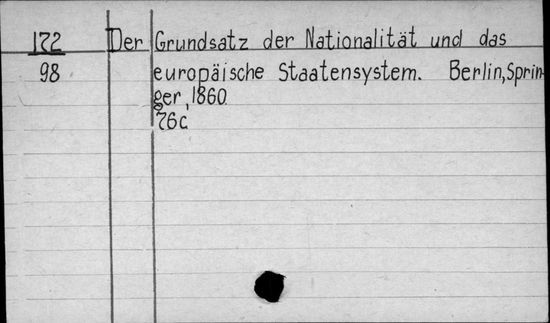 172 Der Grundsatz der Nationalität und das
98 europäische Staatensystem. Berlin, Sprin-
ger, 1860
76c